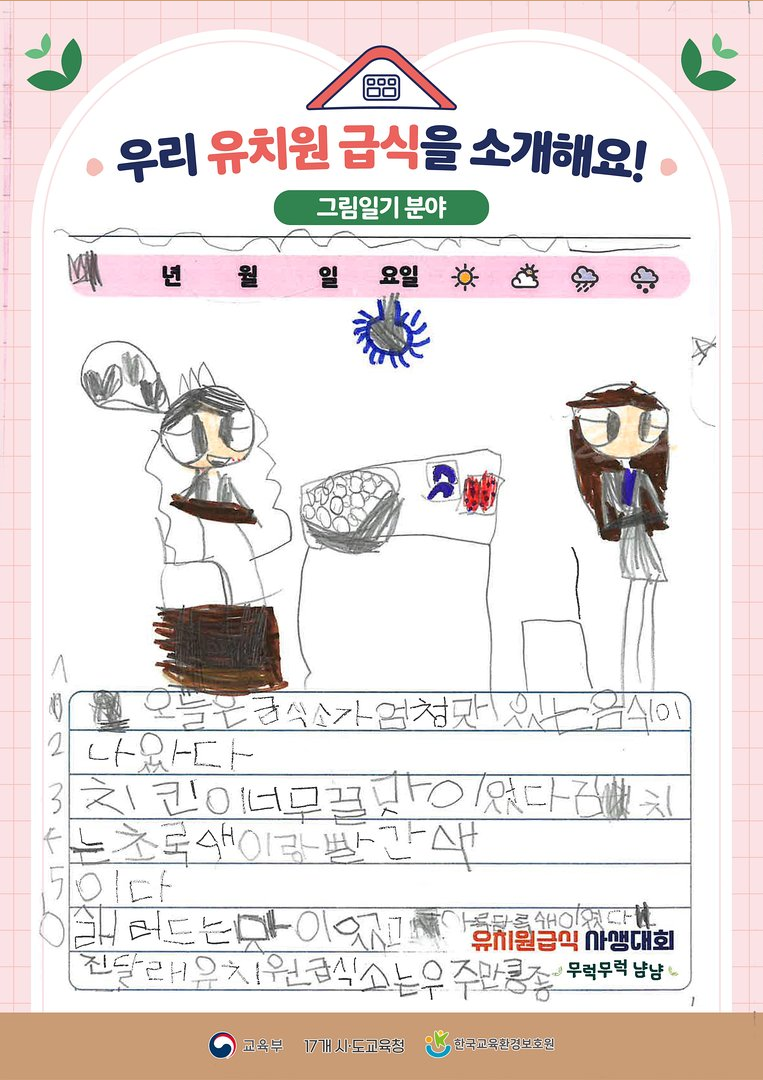 우리 유치원 급식을 소개해요!
그림일기 분야
년 월 일 요일
1 오늘은 급식소가 엄청맛 있는음식이
2 나왔다
3 치킨이너무꿀맛이 있었다김 치
4 는초록색이랑빨간색
5 이다
6 샐러드는맛이있고 아록달록색이였다
진달래유치원급식소는우주만큼좋
유치원급식 사생대회
무럭무럭 냠냠
교육부 17개 시·도교육청 한국교육환경보호원